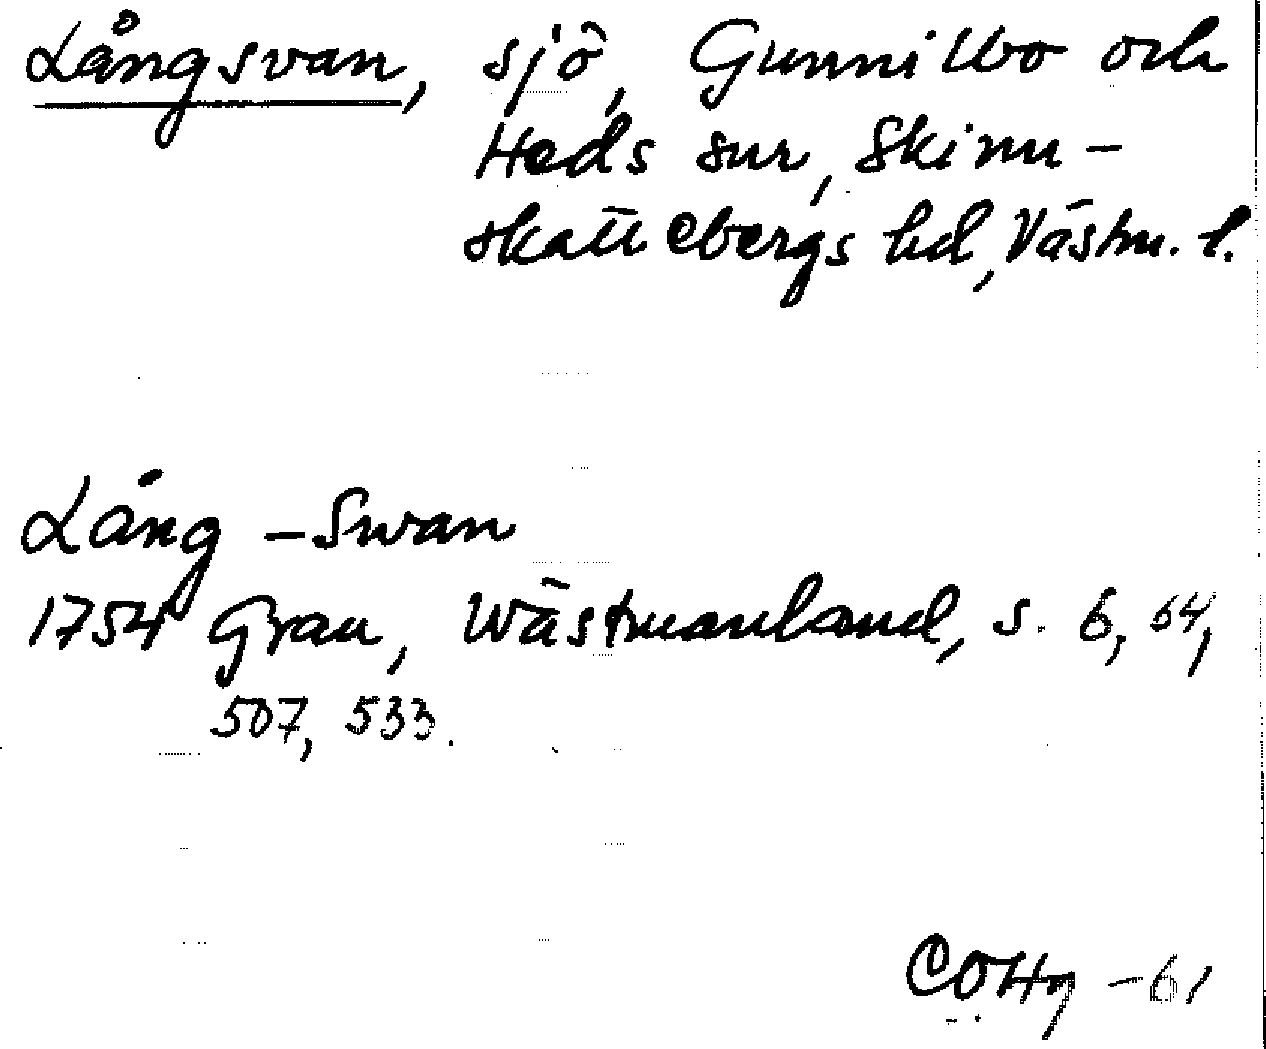 Långsvan, sjö, Gunnilbo och
Heds snr, Skinn-
skattebergs hd, Västm. l.
Lång-Swan
1754 Grau, Wästmanland, s. 6, 64,
507, 533.
COHg -61